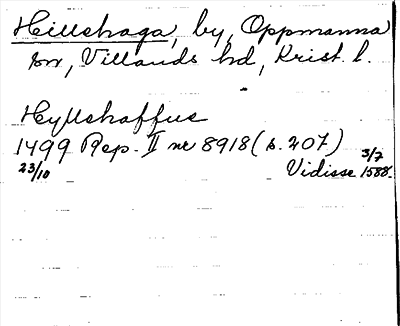 Hillshaga, by, Oppmanna
sn, Villands hd, Krist. l.
Hyllshaffue
1499 Rep. II nr 8918 (s. 207)
23/10 Vidisse 3/7 1588.